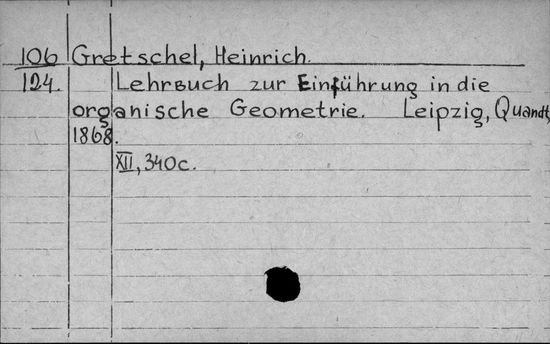 106 Gretschel, Heinrich.
124. Lehrbuch zur Einführung in die
organische Geometrie. Leipzig, Quandt,
1868.
XII, 340c.